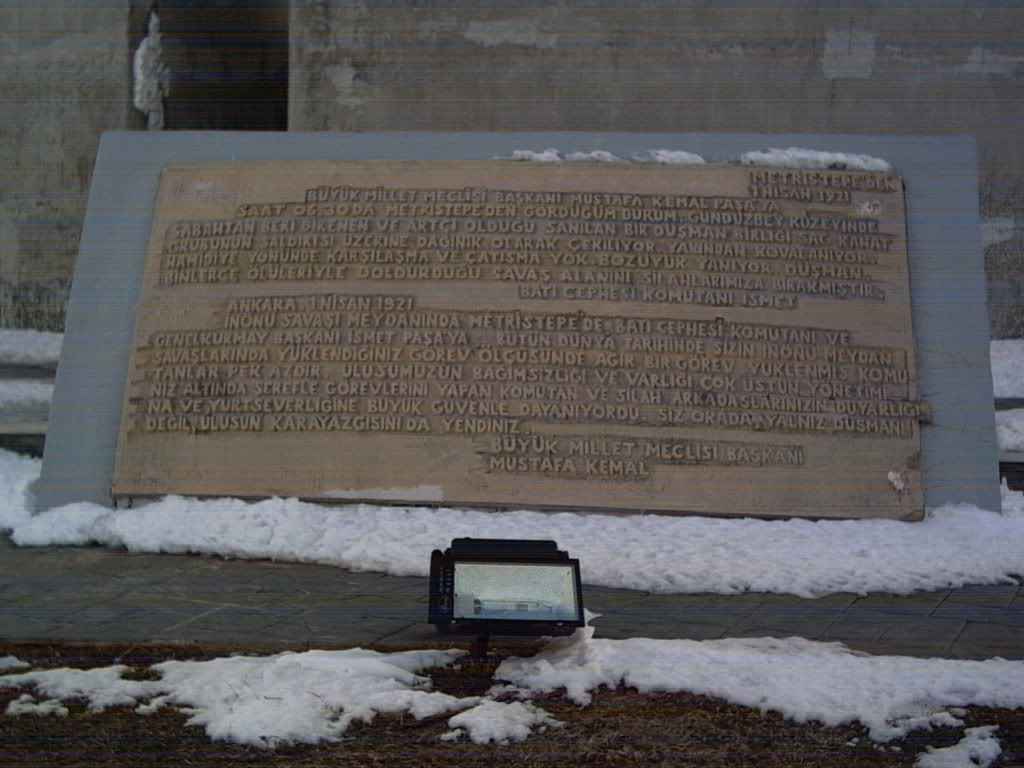 METRİSTEPE'DEN
1 NİSAN 1921
BÜYÜK MİLLET MECLİSİ BAŞKANI MUSTAFA KEMAL PAŞA'YA
SAAT 06.30DA METRİSTEPE'DEN GÖRDÜĞÜM DURUM. GÜNDÜZBEY KUZEYİNDE
SABAHTAN BERİ DİRENEN VE ARTCI OLDUĞU SANILAN BİR DÜŞMAN BİRLİĞİ SAĞ KANAT
GRUBUNUN SALDIRISI ÜZERİNE DAĞINIK OLARAK ÇEKİLİYOR. YAKINDAN KOVALANIYOR.
HAMİDİYE YÖNÜNDE KARŞILAŞMA VE ÇATIŞMA YOK. BOZÜYÜK YANIYOR. DÜŞMAN
BİNLERCE ÖLÜLERİYLE DOLDURDUĞU SAVAŞ ALANINI SİLAHLARIMIZA BIRAKMIŞTIR.
BATI CEPHESİ KOMUTANI İSMET
ANKARA, 1 NİSAN 1921
İNÖNÜ SAVAŞI MEYDANINDA METRİSTEPE'DE, BATI CEPHESİ KOMUTANI VE
GENELKURMAY BAŞKANI İSMET PAŞA'YA BÜTÜN DÜNYA TARİHİNDE SİZİN İNÖNÜ MEYDAN
SAVAŞLARINDA YÜKLENDİĞİNİZ GÖREV ÖLÇÜSÜNDE AĞIR BİR GÖREV YÜKLENMİŞ KOMU
TANLAR PEK AZDIR. ULUSUMUZUN BAĞIMSIZLIĞI VE VARLIĞI ÇOK ÜSTÜN YÖNETİMİ
NİZ ALTINDA ŞEREFLE GÖREVLERİNİ YAPAN KOMUTAN VE SİLAH ARKADAŞLARINIZIN DUYARLIĞI
NA VE YURTSEVERLİĞİNE BÜYÜK GÜVENLE DAYANIYORDU. SİZ ORADA YALNIZ DÜŞMANI
DEĞİL ULUSUN KARAYAZGISINI DA YENDİNİZ
BÜYÜK MİLLET MECLİSİ BAŞKANI
MUSTAFA KEMAL